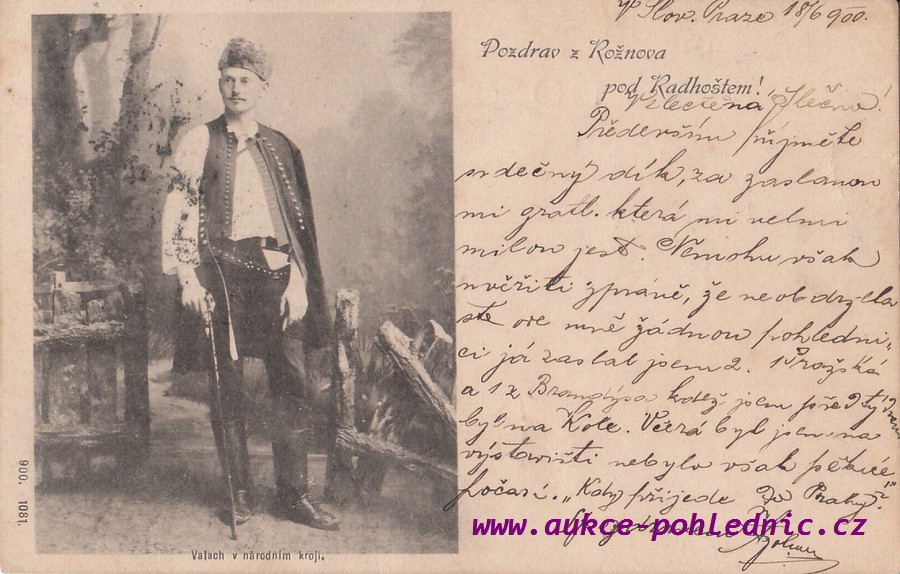 V Slov. Praze 18/6 900.
Pozdrav z Rožnova
pod Radhoštem!
Slečno!
Především přijměte
srdečný dík, za zaslanou
mi gratl. která mi velmi
milou jest. Nemohu však
uvěřiti zprávě, že neobdržela
ste ode mně žádnou pohledni„
ci já zaslal jsem 2. 1 Pražská
a 1 z Brandýsa když jsem před
byl na Kole. Včera byl jsem na
výstavišti nebylo však pěkné
počasí. „Kdy přijede do Prahy?"
900. 1081.
Valach v národním kroji.
www.aukce-pohlednic.cz